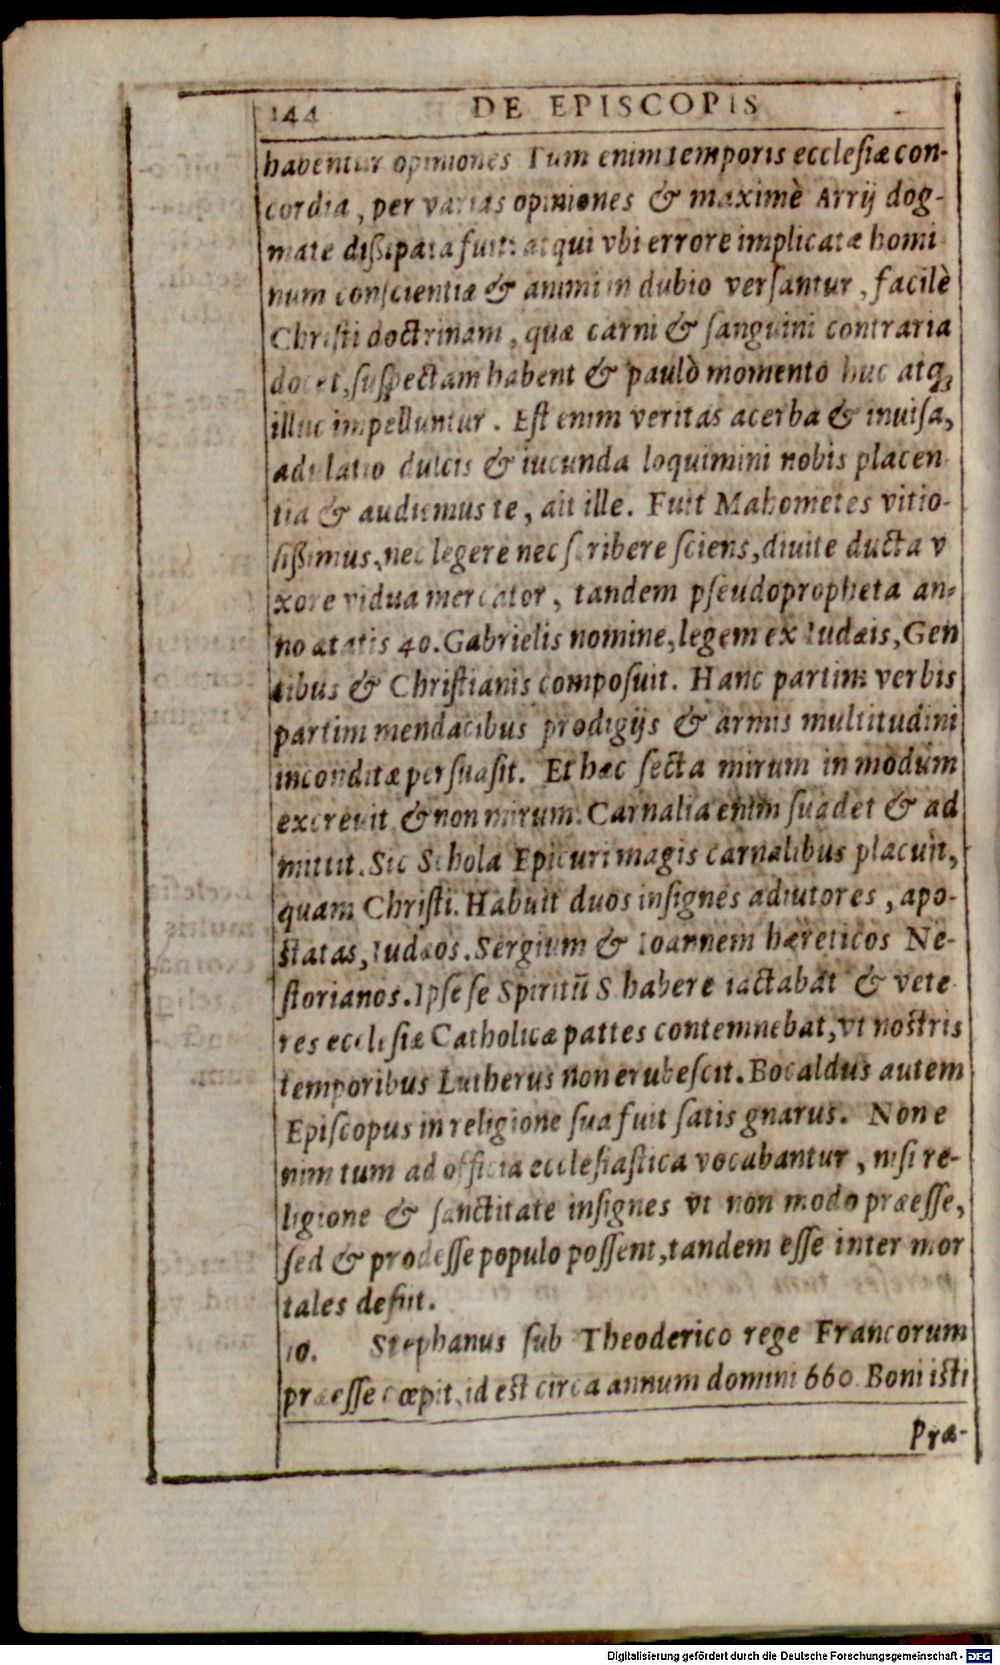 144 DE EPISCOPIS
habentur opiniones Tum enim temporis ecclesiæ con-
cordia, per varias opiniones & maximè Arrij dog-
mate dißipata fuit: atqui vbi errore implicatæ homi
num conscientiæ & animi in dubio versantur, facilè
Christi doctrinam, quæ carni & sanguini contraria
docet, suspectam habent & paulò momento huc atq3
illuc impelluntur. Est enim veritas acerba & inuisa,
adulatio dulcis & iucunda loquimini nobis placen
tia & audiemus te, ait ille. Fuit Mahometes vitio-
sißimus, nec legere nec scribere sciens, diuite ducta v
xore vidua mercator, tandem pseudopropheta an-
no ætatis 40. Gabrielis nomine, legem ex Iudæis, Gen
tibus & Christianis composuit. Hanc partim verbis
partim mendacibus prodigijs & armis multitudini
inconditæ persuasit. Et hæc secta mirum in modum
excreuit & non mirum. Carnalia enim suadet & ad
mittit. Sic Schola Epicuri magis carnalibus placuit,
quam Christi. Habuit duos insignes adiutores, apo-
statas, Iudæos. Sergium & Ioannem hæreticos Ne-
storianos. Ipse se Spiritū S habere iactabat & vete
res ecclesiæ Catholicæ pattes contemnebat, vt nostris
temporibus Lutherus non erubescit. Bocaldus autem
Episcopus in religione sua fuit satis gnarus. Non e
nim tum ad officia ecclesiastica vocabantur, nisi re-
ligione & sanctitate insignes vt non modo præesse,
sed & prodesse populo possent, tandem esse inter mor
tales desiit.
10. Stephanus sub Theoderico rege Francorum
præesse cœpit, id est circa annum domini 660. Boni isti
Præ-
Digitalisierung gefördert durch die Deutsche Forschungsgemeinschaft - DFG